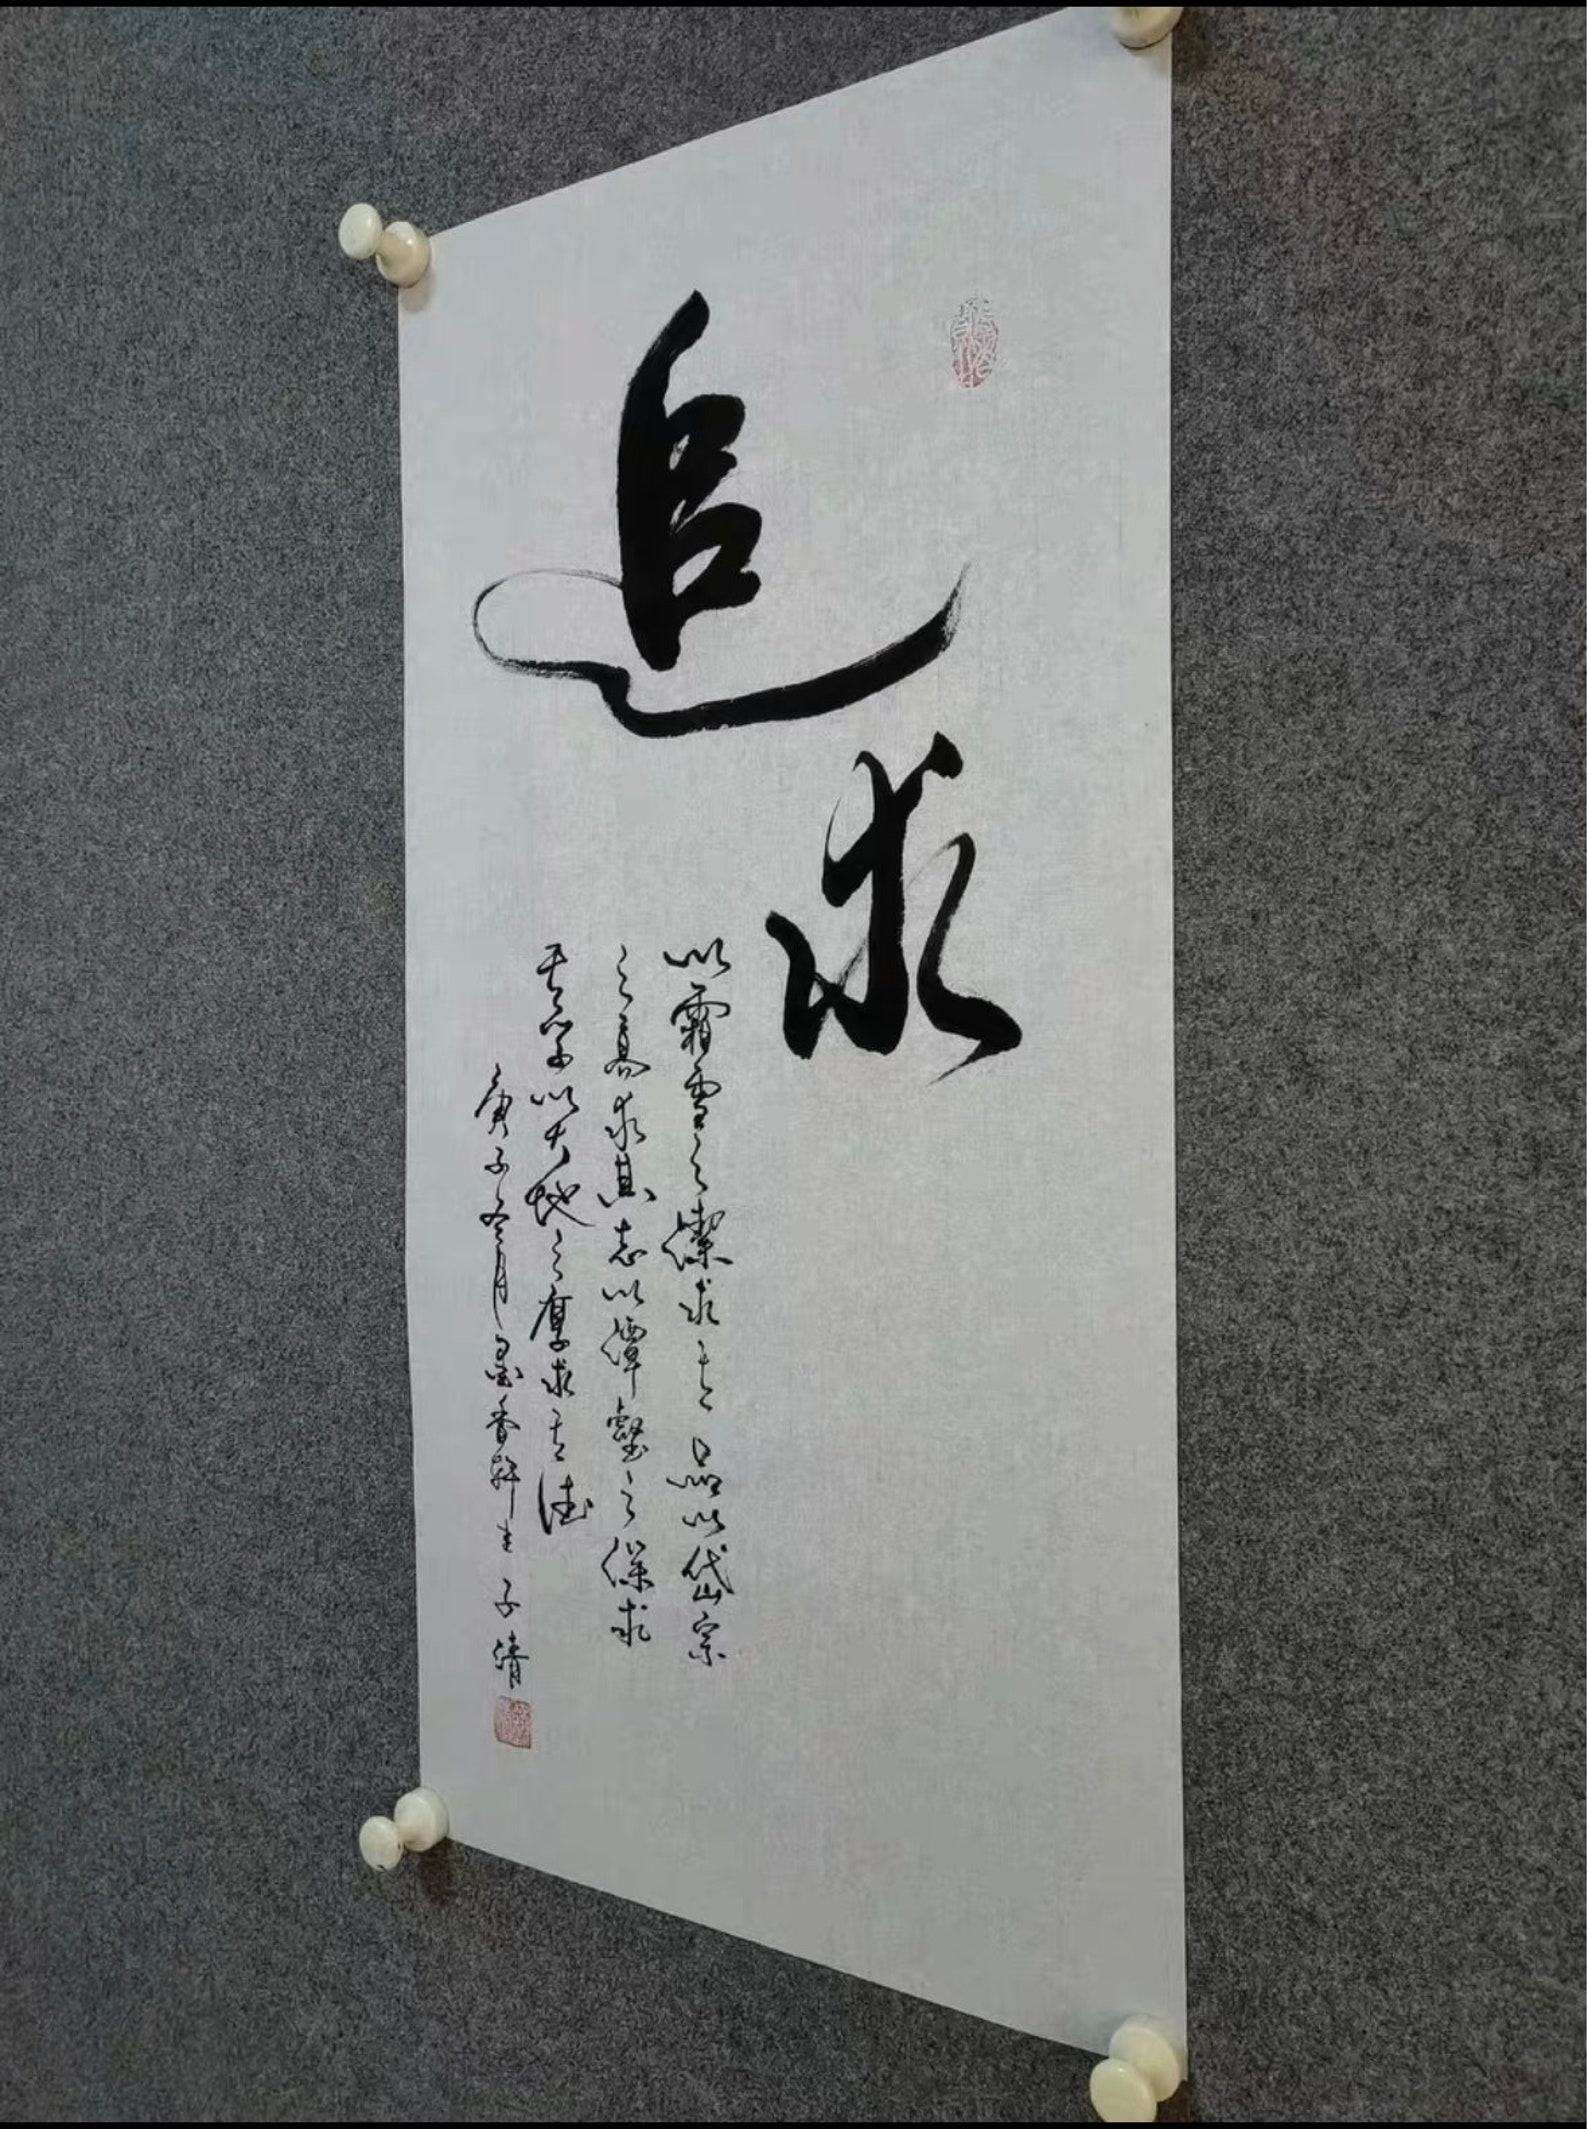 追求
以霜雪之潔求其品以岱宗
之高求其志以潭壑之深求
其学以大地之厚求其德
庚子冬月墨香軒主子清